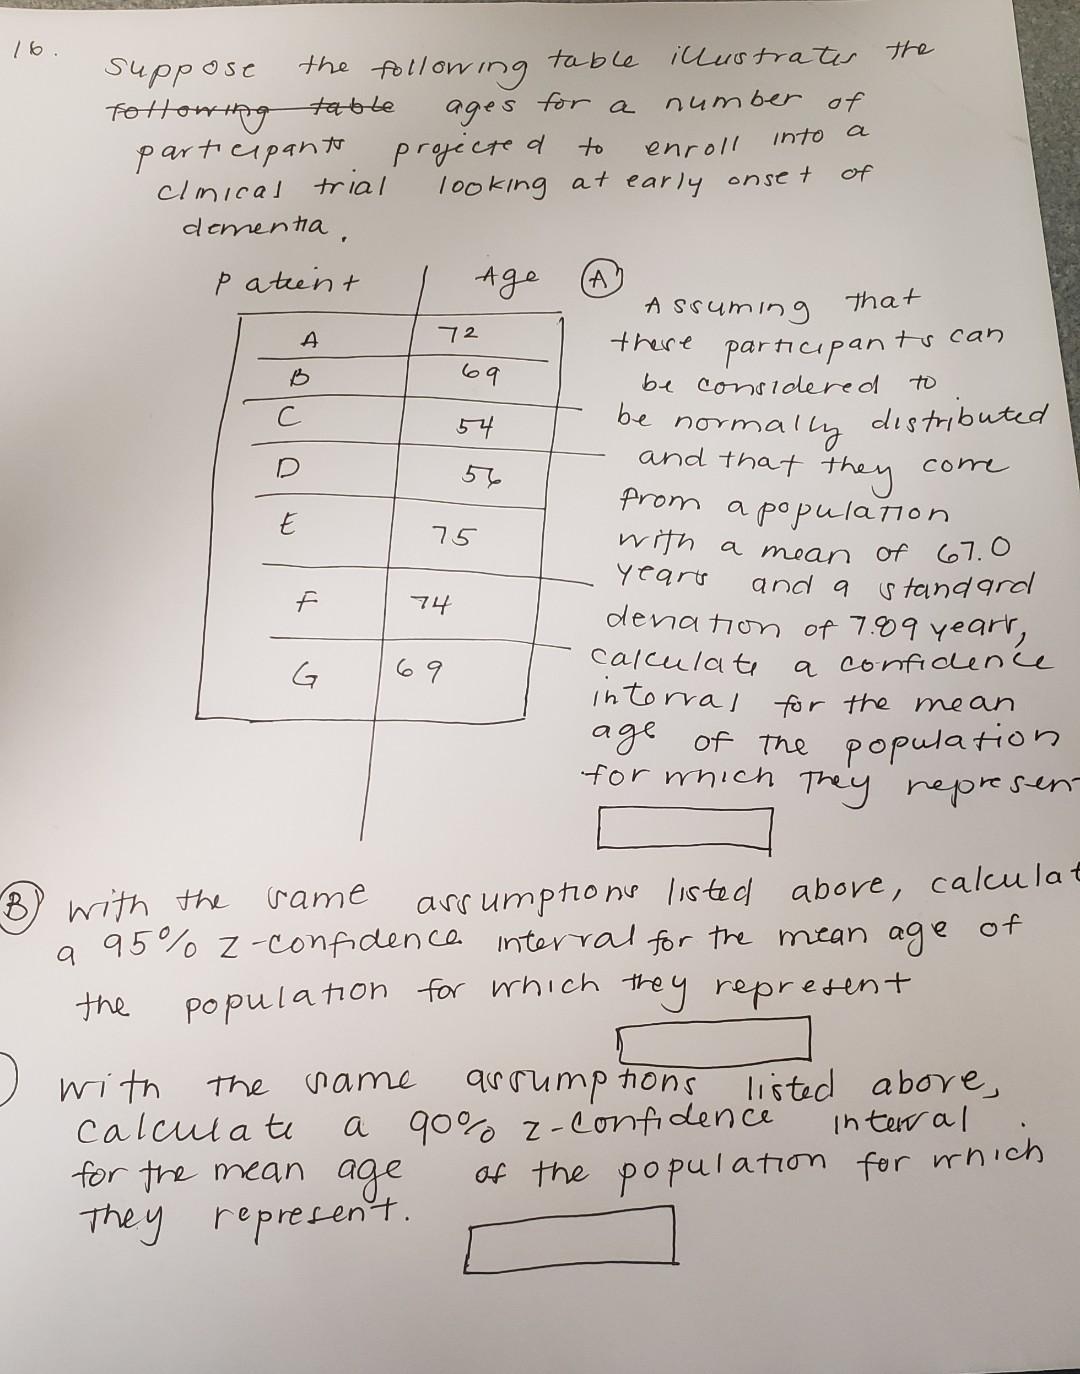 16.
Suppose the following table illustrates the
following table ages for a number of
participants projected to enroll into a
clinical trial looking at early onset of
dementia.
Patient Age
A 72
B 69
C 54
D 56
E 75
F 74
G 69
(A)
Assuming that
these participants can
be considered to
be normally distributed
and that they come
from a population
with a mean of 67.0
years and a standard
deviation of 7.89 years,
calculate a confidence
interval for the mean
age of the population
for which they represen
(B) with the same assumptions listed above, calculat
a 95% z-confidence interval for the mean age of
the population for which they represent
with the same assumptions listed above,
calculate a 90% z-confidence interval
for the mean age of the population for which
they represent.